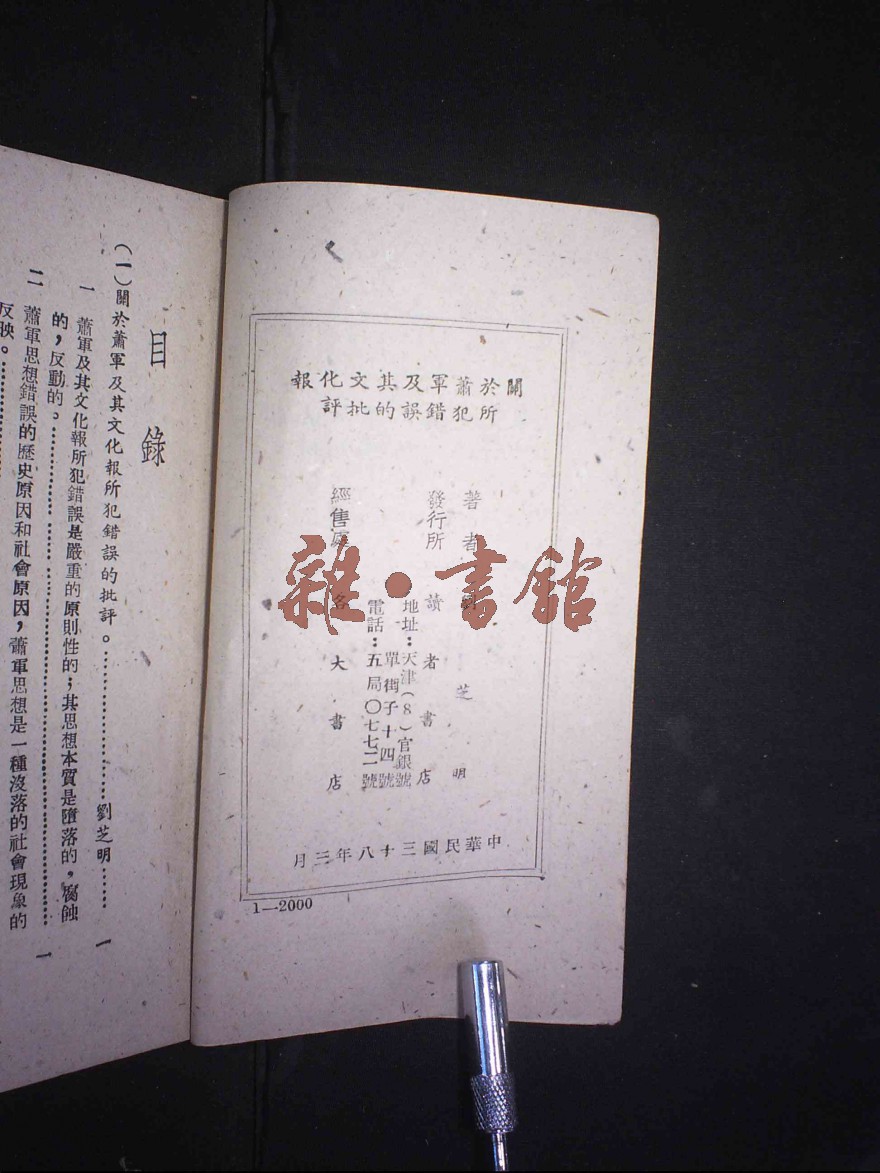 關於蕭軍及其文化報
所犯錯誤的批評
著者 劉芝明
發行所 讀者書店
地址：天津(8)官銀號
單街子十四號
電話：五局〇七七二號
經售處 各大書店
中華民國三十八年三月
1—2000
目錄
(一)關於蕭軍及其文化報所犯錯誤的批評。……………劉芝明……一
一 蕭軍及其文化報所犯錯誤是嚴重的原則性的；其思想本質是墮落的，腐蝕
的，反動的。……………………………………一
二 蕭軍思想錯誤的歷史原因和社會原因，蕭軍思想是一種沒落的社會現象的
反映。……………
雜·書館